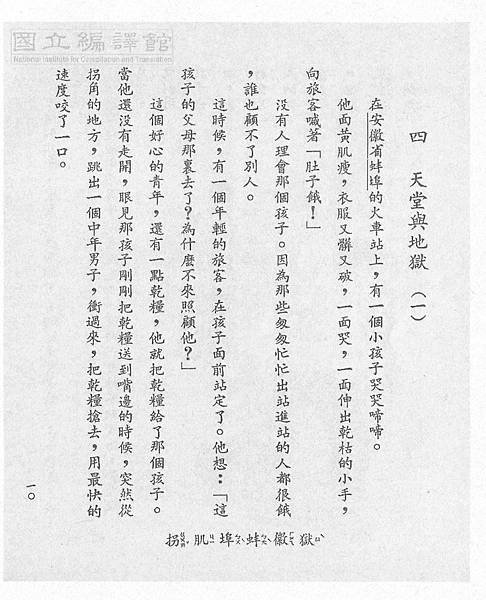 國立編譯館
National Institute for Compilation and Translation
四　天堂與地獄（一）
在安徽省蚌埠的火車站上，有一個小孩子哭哭啼啼。
他面黃肌瘦，衣服又髒又破，一面哭，一面伸出乾枯的小手，
向旅客喊著「肚子餓！」
沒有人理會那個孩子。因為那些匆匆忙忙出站進站的人都很餓
，誰也顧不了別人。
這時候，有一個年輕的旅客，在孩子面前站定了。他想：「這
孩子的父母那裏去了？為什麼不來照顧他？」
這個好心的青年，還有一點乾糧，他就把乾糧給了那個孩子。
當他還沒有走開，眼見那孩子剛剛把乾糧送到嘴邊的時候，突然從
拐角的地方，跳出一個中年男子，衝過來，把乾糧搶去，用最快的
速度咬了一口。
獄徽蚌埠肌拐
一○